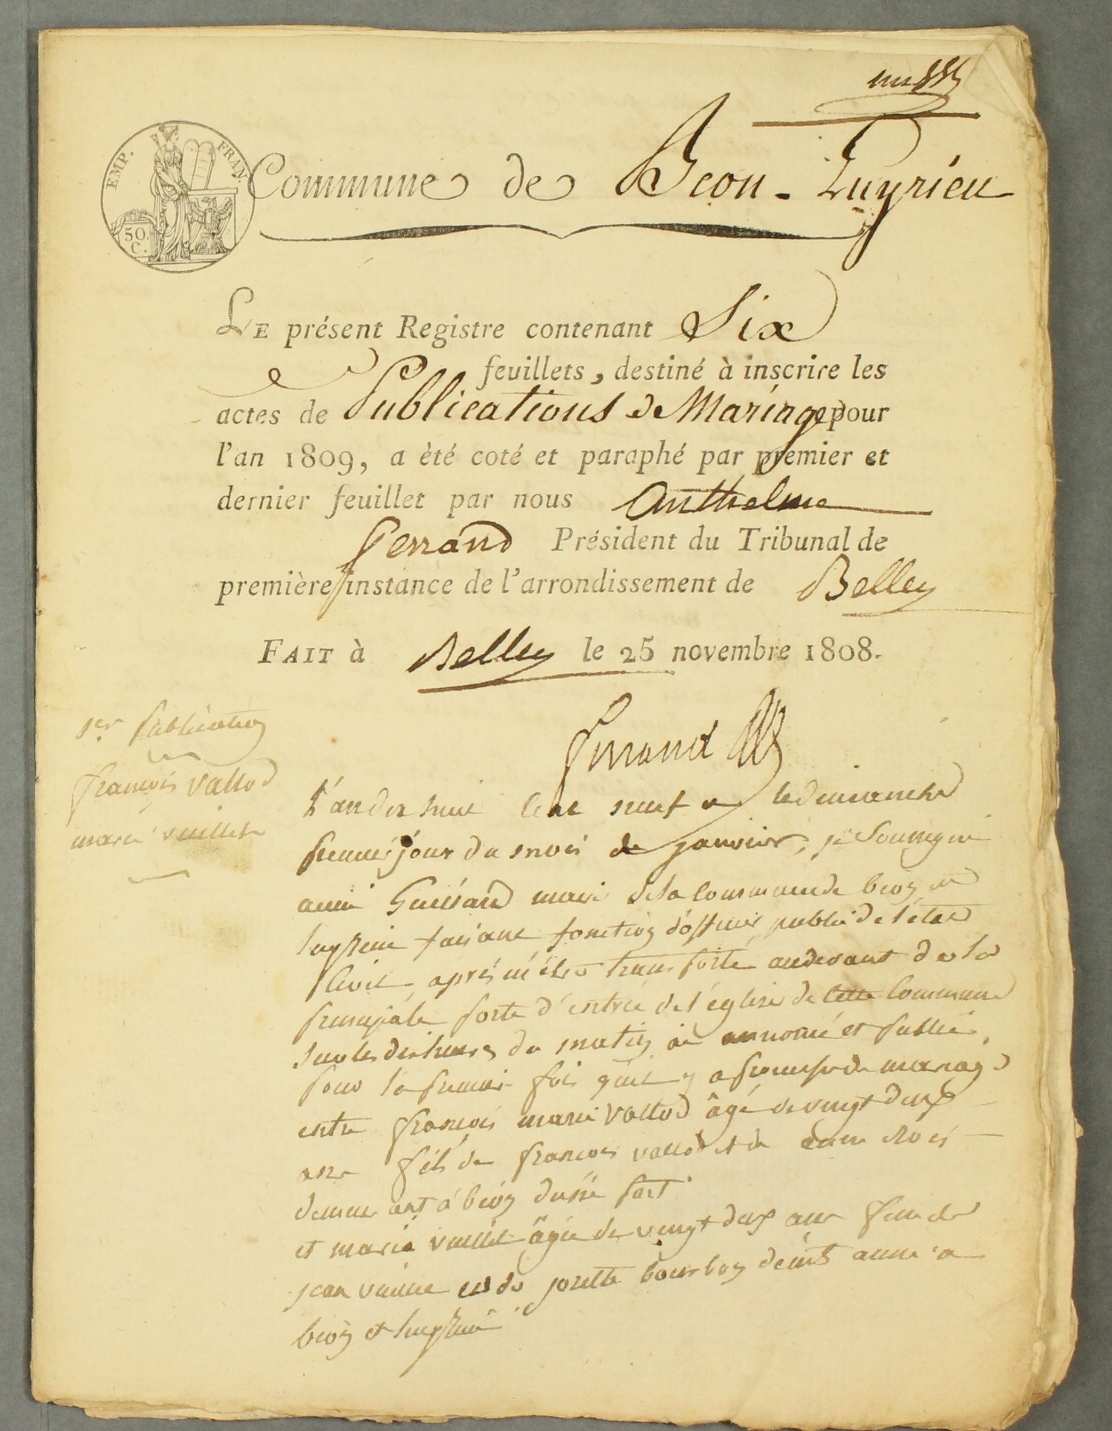 EMP. FRAN.
50 C.
Commune de Béon-Luyrieu
LE présent Registre contenant Six
feuillets, destiné à inscrire les
actes de Publications de Mariage pour
l'an 1809, a été coté et paraphé par premier et
dernier feuillet par nous Anthelme
Ferrand Président du Tribunal de
première instance de l'arrondissement de Belley
FAIT à Belley le 25 novembre 1808.
Ferrand
1er publication
françois vallod
marie vuillet
L'an dix huit cent neuf et le dimanche
premier jour du mois de janvier, je soussigné
maire de la commune de beon et
luyrieu faisant fonction d'officier public de l'état
Civil, après m'être transporté audevant de la
principale porte d'entrée de l'église de cette Commune
sur les dix heures du matin ai annoncé et publié
pour la premiere fois qu'il y a promesse de mariage
entre françois marie Vallod âgé de vingt deux
ans fils de françois vallod et de
demeurant à béon
et marie vuillet âgée de vingt deux ans fille de
jean et de josette bourbon
beon et luyrieu